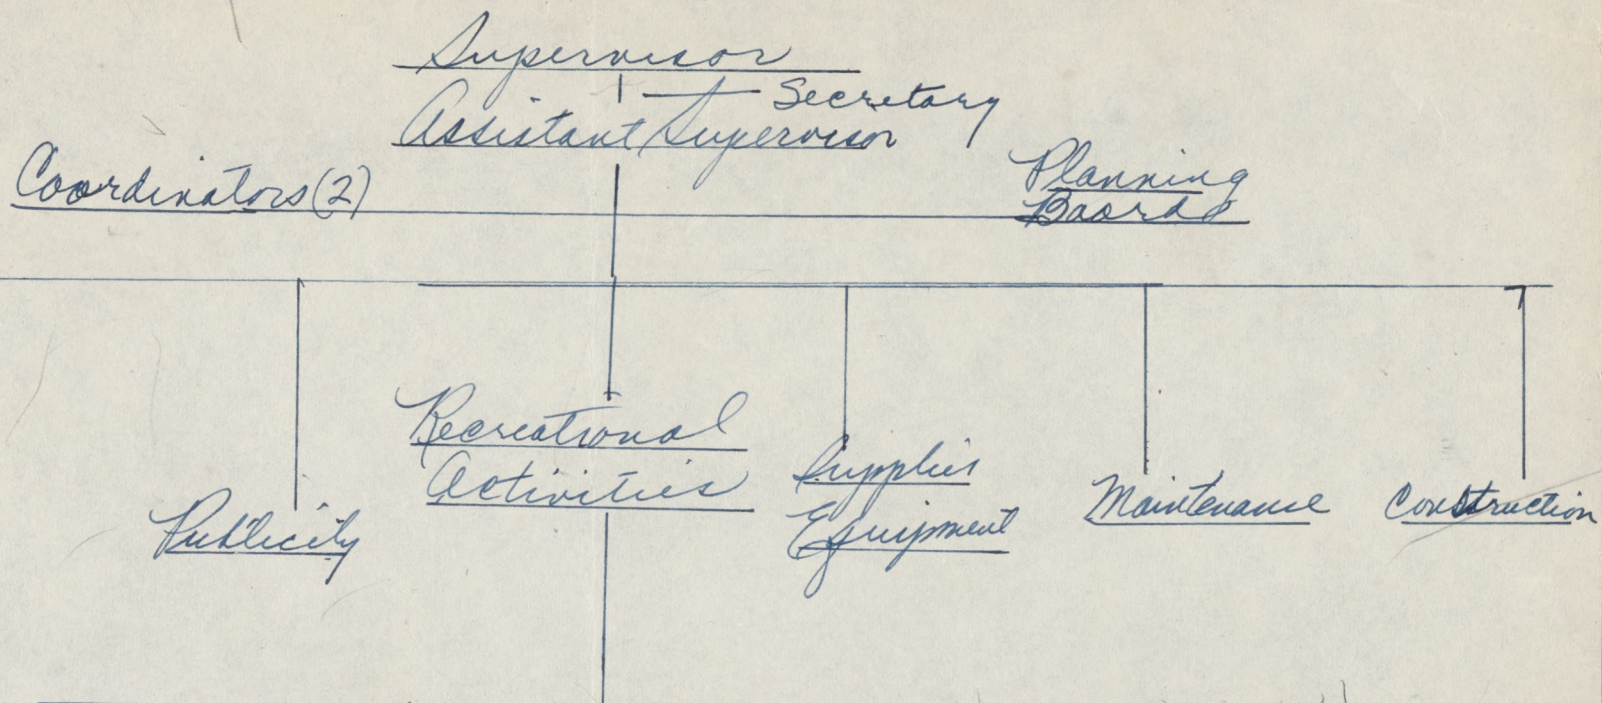 Supervisor
Secretary
Assistant Supervisor
Coordinators (2)
Planning
Board
Recreational
Activities
Publicity
Supplies
Equipment
Maintenance
Construction